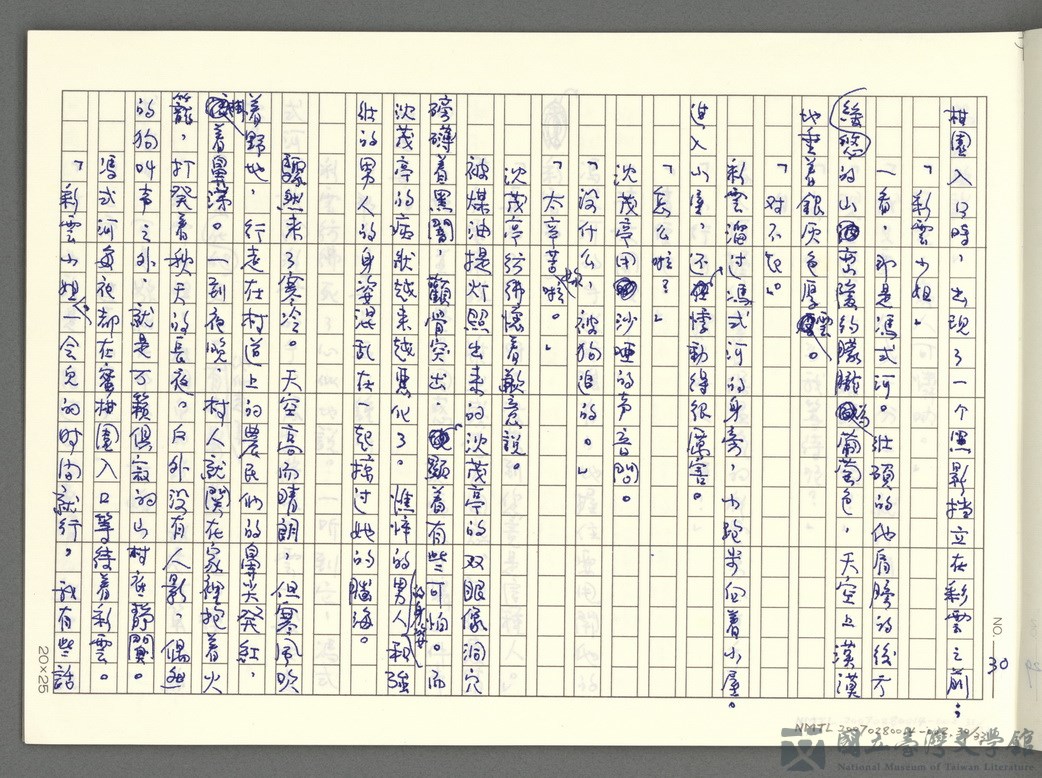 柑園入口時，出現了一个黑影擋立在彩雲之前；
「彩雲小姐。」
一看，即是馮式河。壯碩的他肩膀的後方
綿悠的山巒隱約朦朧為葡萄色，天空上漠漠
地垂着銀灰色厚雲。
「對不起。」
彩雲溜过馮式河的身旁，小跑步向着小屋。
進入山房，还悸動得很厲害。
「怎么啦？」
沈茂亭用沙啞的声音問。
「没什么，被狗追的。」
「太辛苦妳啦。」
沈茂亭彷彿懷着歉意說。
被煤油提灯照出來的沈茂亭的双眼像洞穴
磅礴着黑闇，顴骨突出，顯着有些可怕。而
沈茂亭的病狀越来越惡化了。憔悴的男人的身姿和強
壯的男人的身姿混乱在一起掠过她的腦海。
驟然来了寒冷。天空高而晴朗，但寒風吹
着野地，行走在村道上的農民他的鼻尖発紅，
掛着鼻涕。一到夜晚，村人就関在家裡抱着火
籠，打発着秋天的長夜。户外没有人影，偶然
的狗叫声之外，就是万籟俱寂的山村夜靜闃。
馮式河每夜都在蜜柑園入口等待着彩雲。
「彩雲小姐，一会兒的时间就行。我有些話
20×25
NO. 30
國立臺灣文學館
National Museum of Taiwan Literature